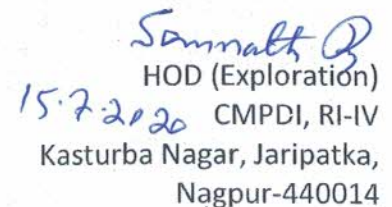 Somnath
HOD (Exploration)
15.7.2020 CMPDI, RI-IV
Kasturba Nagar, Jaripatka,
Nagpur-440014